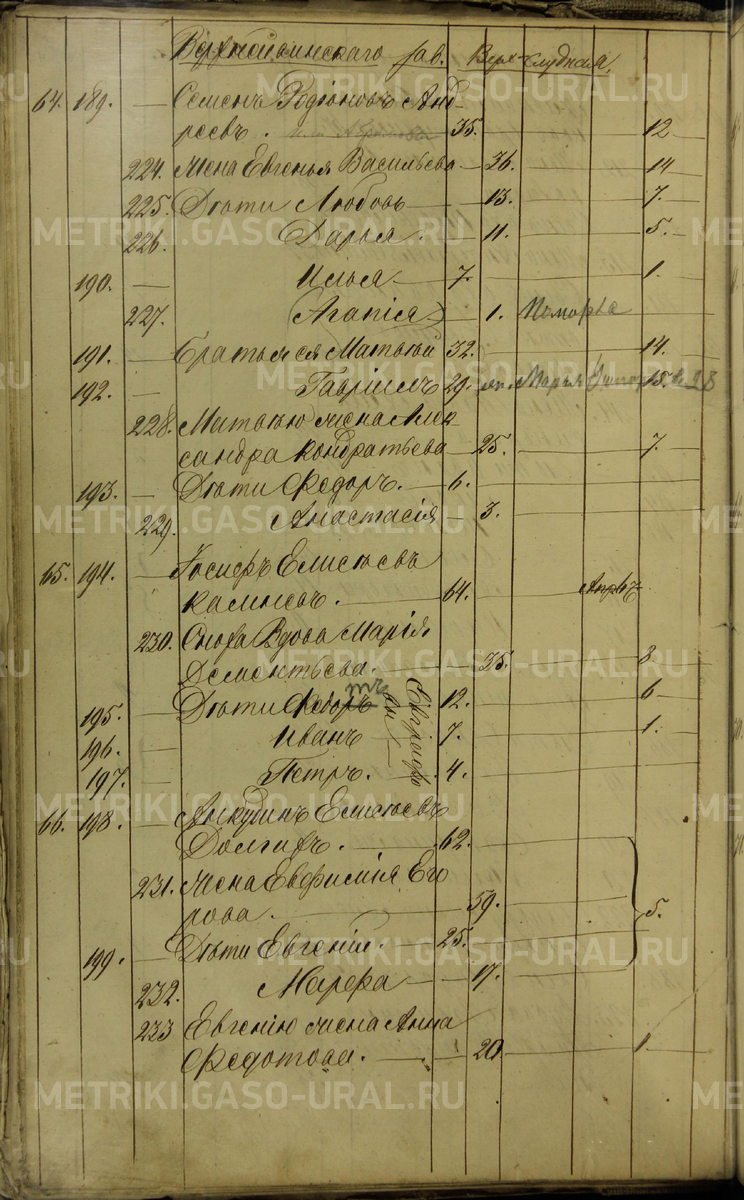 Верхтисинскаго зав. Верх-слудная,
64. 189. — Семенъ Родіоновъ Анд-
реевъ. 35. 12
224. Жена Евгенья Васильева — 36. 14
225. Дѣти Любовь — 13. 7.
226. Дарья. 11. 5.
190. — Илья — 7. 1.
227. (Агапія) 1. Померла
191. — Братья ся Матвѣй 32. 14.
192. — Гавріилъ 29. Марья 15.
228. Матвѣю жена Алек
сандра Кондратьева — 25. 7.
193. — Дѣти Федоръ. — 6.
229. Анастасія — 3.
65. 194. — Іосифъ Елисѣевъ
64.
230. Сноха Вдова Марія
Дементьева. — 35. 8
195. — Дѣти Ѳедоръ 12. 6
196. — Иванъ 7. 1.
197. — Петръ. 4.
Евграфъ
66. 198. — Елисѣевъ
Долгихъ. — 62.
231. Жена Евфимія Его
рова. — 59. 5.
199. — Дѣти Евгеній. — 25.
232. Марфа — 17.
233 Евгенію жена Анна
Федотова. — 20 1
METRIKI.GASO-URAL.RU